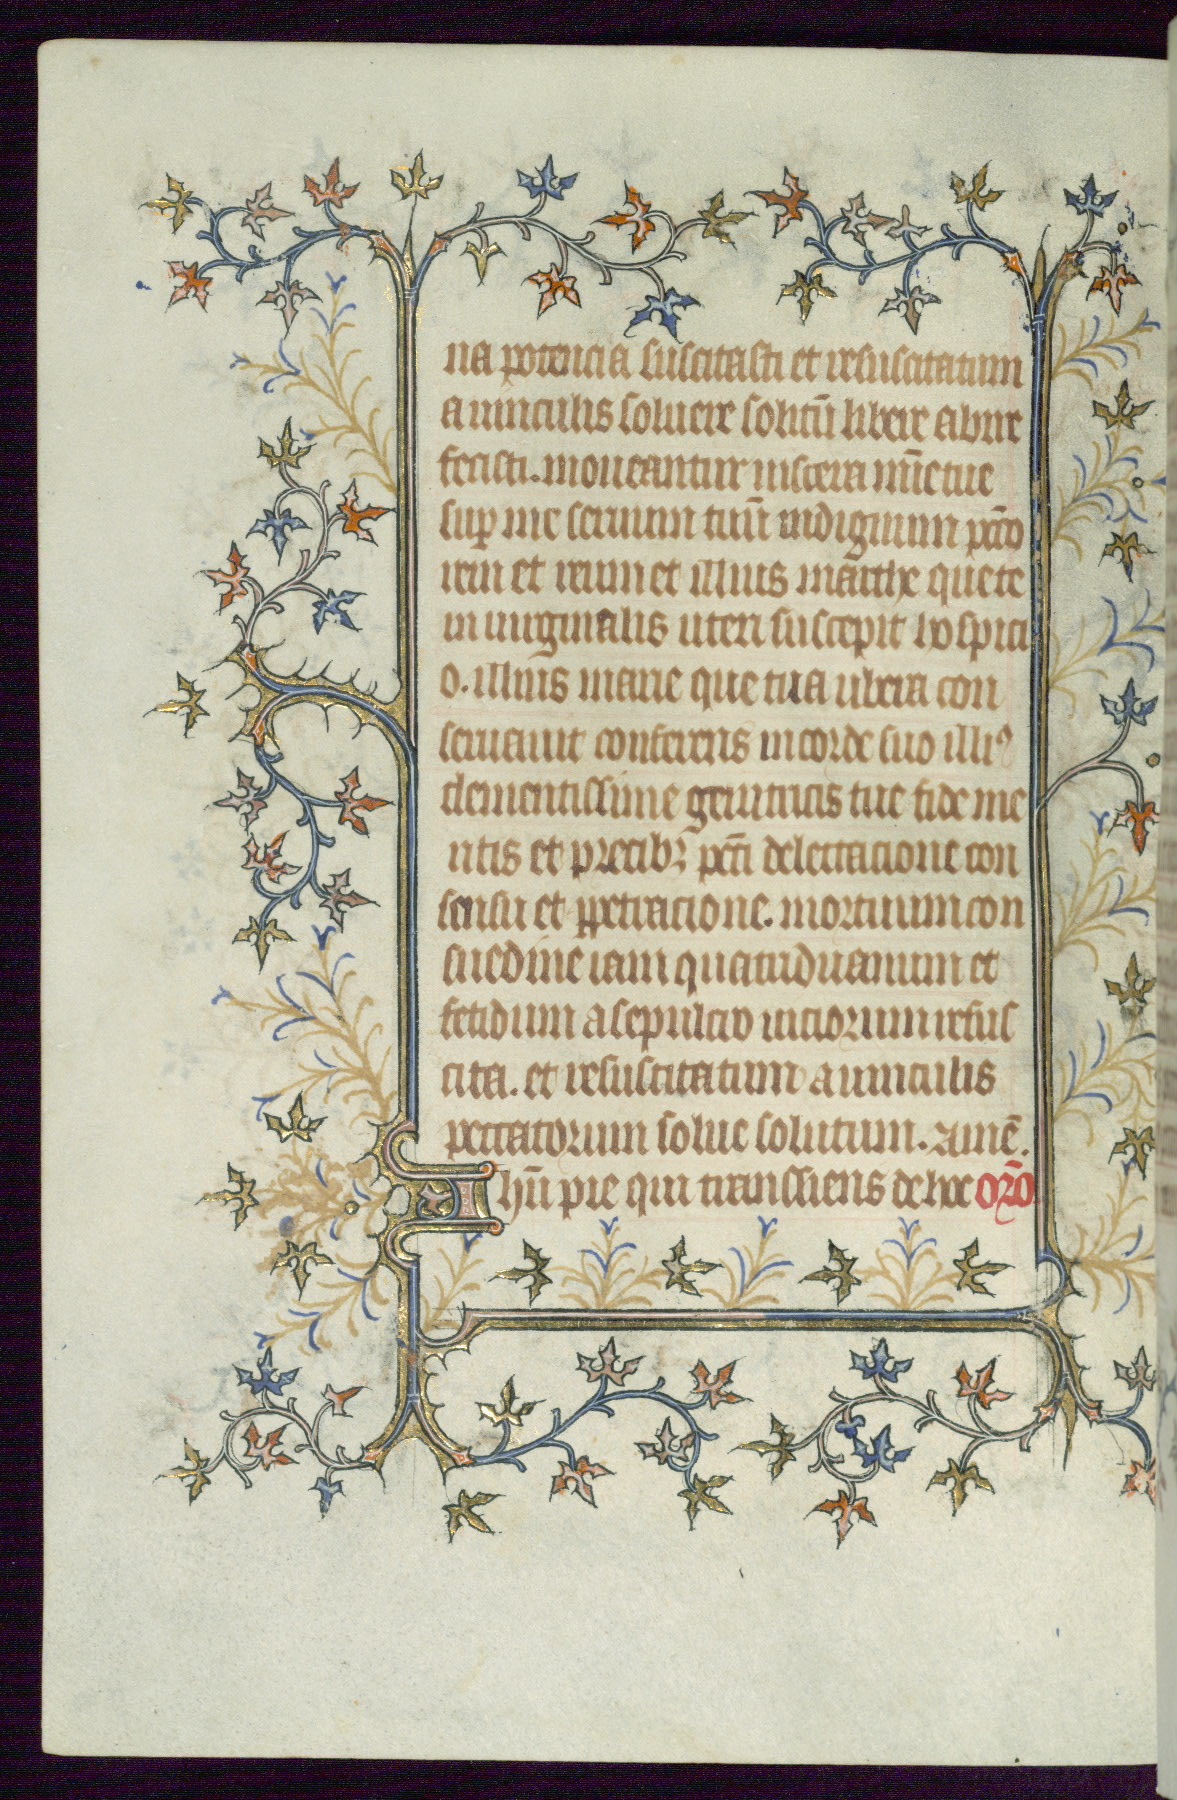 na potencia suscitasti et resuscitatum
a uinculis soluere solutū libere abire
fecisti. moueantur uiscera mīe tue
sup me seruum tuū indignum pcc̄o
rem et reum et illius marthe que te
in uirginalis uteri suscepit hospici
o. illius marie que tua ubera con
seruauit conferens in corde suo illiꝰ
clementissime genitricis tue fide me
ritis et precibꝫ pcc̄i delectacione con
sensu et ꝑpetracione. mortuum con
suedine iam quatriduanum et
fetidum a sepulcro uiciorum resus
cita. et resuscitatum a uinculis
peccatorum solue solutum. amē.
Ihū pie qui transsiens de hoc or̄o